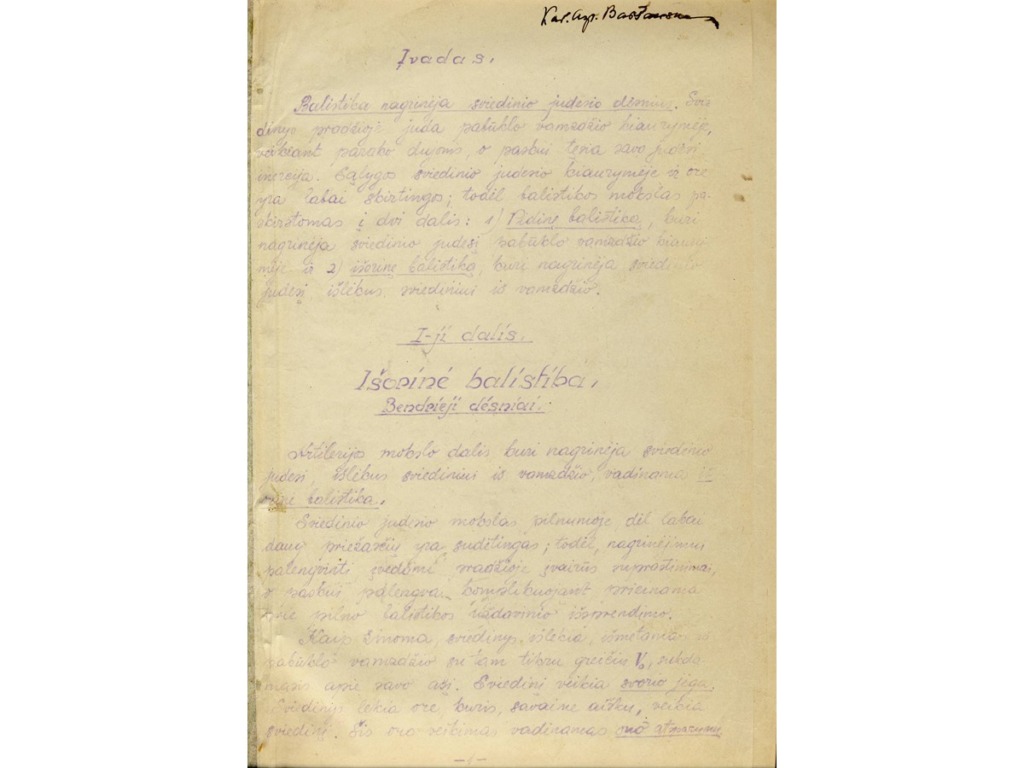 Kar. Asp.
Įvadas.
Balistika nagrinėja sviedinio judesio dėsnius. Svie-
dinys pradžioje juda pabūklo vamzdžio biaurymėje,
veikiant parako dujoms, o paskui tęsia savo judesį
inercija. Sąlygos sviedinio judesio biaurymėje ir ore
yra labai skirtingos; todėl balistikos mokslas pa-
skirstomas į dvi dalis: 1) Vidinę balistiką, kuri
nagrinėja sviedinio judesį pabūklo vamzdžio biaury-
mėje ir 2) išorinę balistiką, kuri nagrinėja sviedinio
judesį išlėkus sviediniui iš vamzdžio.
I-ji dalis.
Išorinė balistika.
Bendrieji dėsniai.
Artilerijos mokslo dalis kuri nagrinėja sviedinio
judesį, išlėkus sviediniui iš vamzdžio, vadinama iš-
orinė balistika.
Sviedinio judesio mokslas pilnumoje dėl labai
daug priežasčių yra sudėtingas; todėl, nagrinėjimui
palengvinti įvedami pradžioje įvairūs suprastinimai,
o paskui palengva komplikuojant prieinama
prie pilno balistikos uždavinio išsprendimo.
Kaip žinoma, sviedinys išlekia, išmetamas iš
pabūklo vamzdžio su tam tikru greičiu V₀, sukda-
masis apie savo ašį. Sviedinį veikia svorio jėga.
Sviedinys lekia ore, kuris, savaime aišku, veikia
sviedinį. Šis oro veikimas vadinamas oro
— 1 —